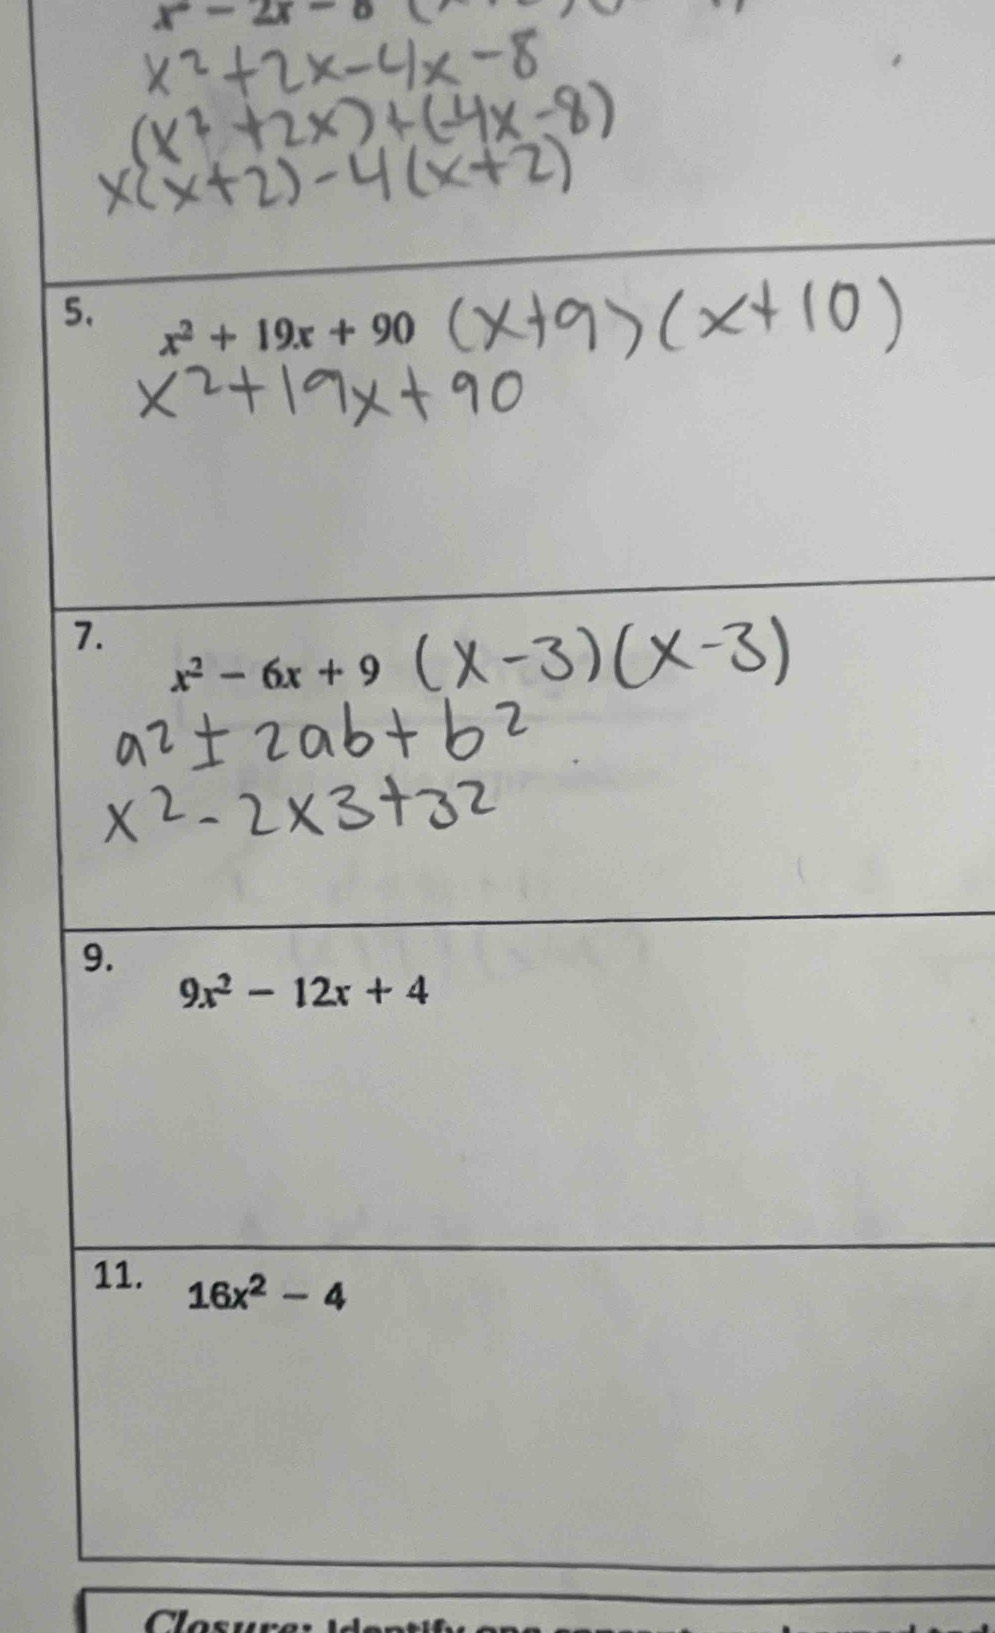 x² − 2x − 8
x² + 2x − 4x − 8
(x² + 2x) + (-4x − 8)
x(x + 2) − 4(x + 2)
5. x² + 19x + 90 (x + 9)(x + 10)
x² + 19x + 90
7. x² − 6x + 9 (x − 3)(x − 3)
a² ± 2ab + b²
x² - 2x3 + 3²
9. 9x² − 12x + 4
11. 16x² − 4
Closure: Identify one